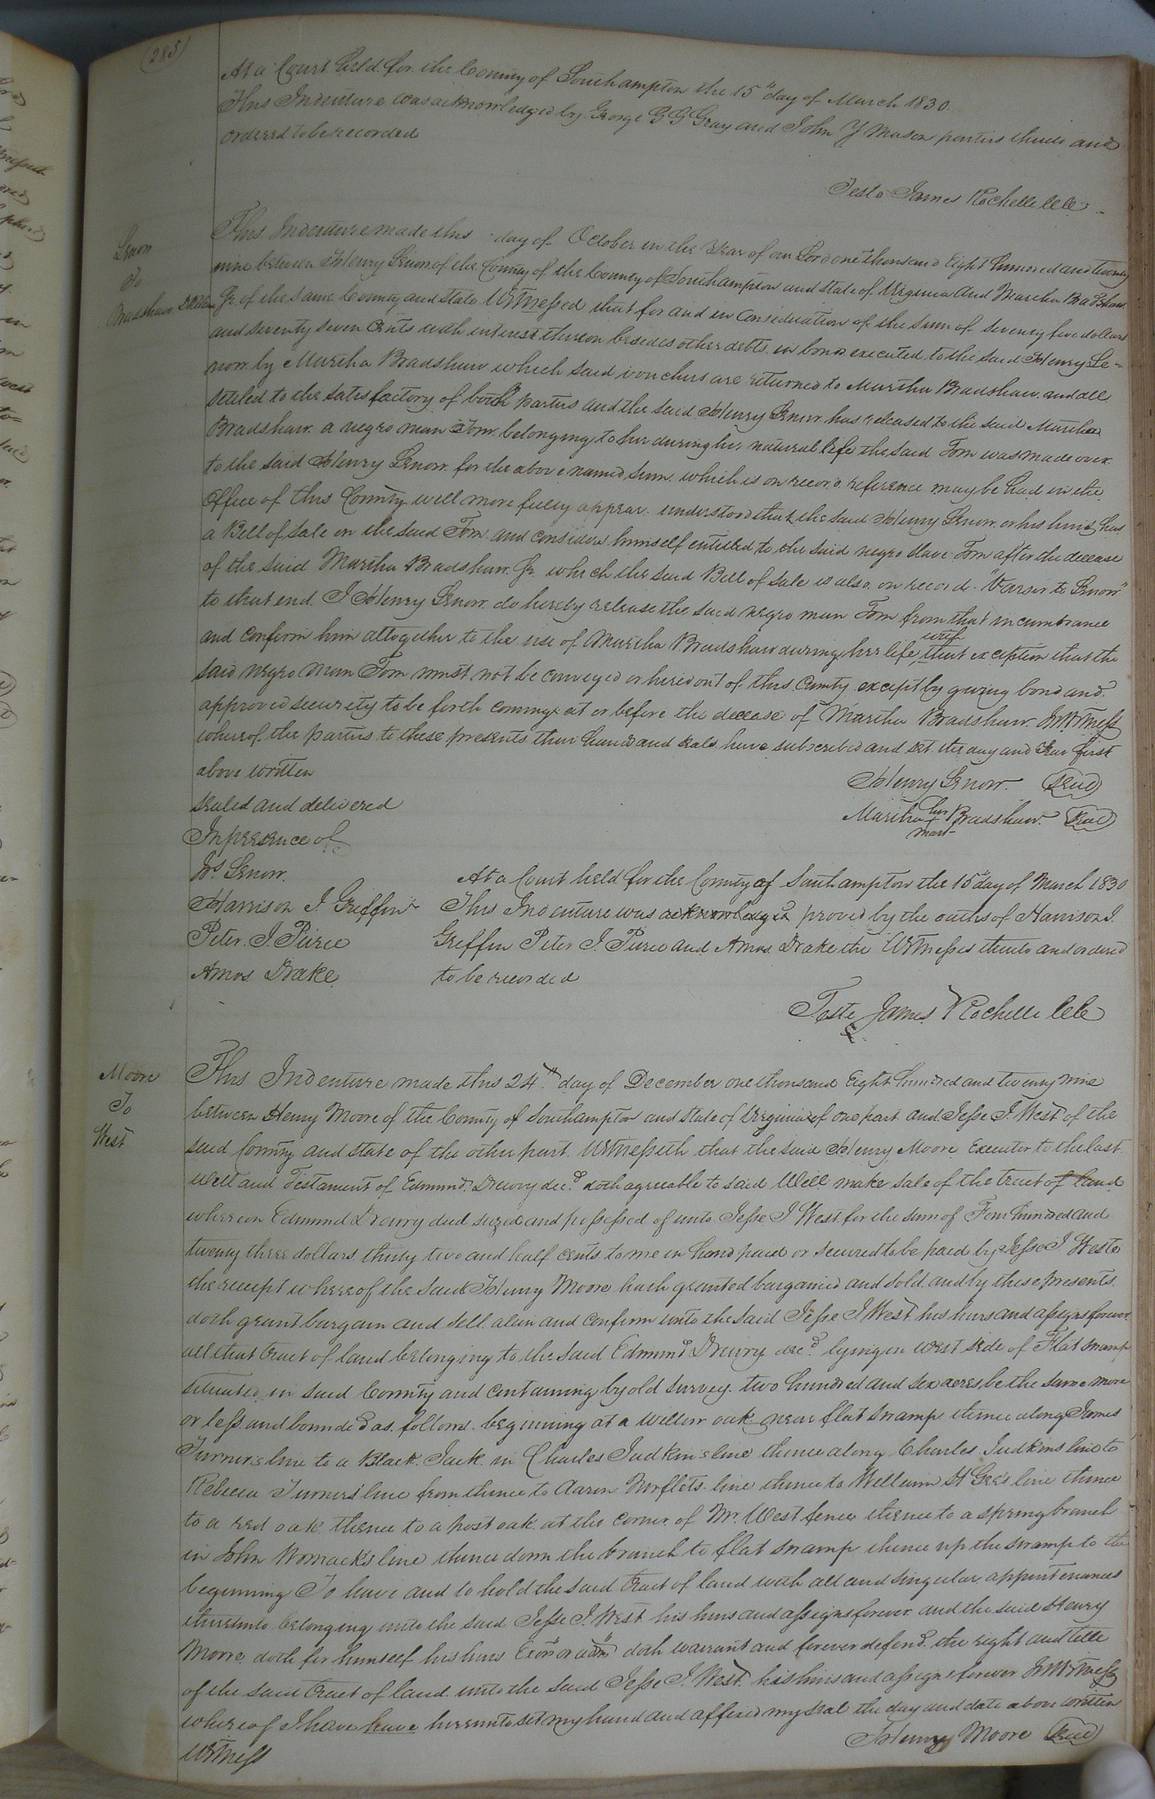 (285)
At a Court held for the County of Southampton the 15th day of March 1830.
This Indenture was acknowledged by George G G Gray and John Y Mason parties thereto and
ordered to be recorded
Teste James Rochelle Clk
Lenow
To
Bradshaw
This Indenture made this day of October in the Year of our Lord one thousand Eight hundred and twenty
nine between Henry Lenow of the County of the County of Southampton and State of Virginia and Martha Bradshaw
Jr of the same County and State Witnessed that for and in Consideration of the Sum of Seventy five dollars
and seventy seven Cents with interest thereon besides other debts in bonds executed to the said Henry Le-
now by Martha Bradshaw which said vouchers are returned to Martha Bradshaw and all
settled to the satisfactory of both parties and the said Henry Lenow has released to the said Martha
Bradshaw a negro man Tom belonging to her during her natural life the said Tom was made over
to the said Henry Lenow for the above named sum which is on record reference may be had in the
Office of this County will more fully appear understood that the said Henry Lenow or his heirs has
a Bill of Sale on the said Tom and consider himself entitled to the said negro slave Tom after the decease
of the said Martha Bradshaw Jr which the said Bill of Sale is also on record "Vaser to Lenow"
to that end I Henry Lenow do hereby release the said negro man Tom from that incumbrance
and confirm him altogether to the use of Martha Bradshaw during her life with that exception that the
said negro man Tom must not be conveyed or hired out of this County except by giving bond and
approved security to be forth coming at or before the decease of Martha Bradshaw In Witness
whereof the parties to these presents their hands and seals have subscribed and set the day and Year first
above written
Henry Lenow (Seal)
sealed and delivered
Martha her mark Bradshaw (Seal)
In presence of
Js Lenow
At a Court held for the County of Southampton the 15th day of March 1830
Harrison J. Griffin
This Indenture was acknowledged proved by the oaths of Harrison J.
Peter J Pierce
Griffin Peter J Pierce and Amos Drake the Witnesses thereto and ordered
Amos Drake
to be recorded
Teste James Rochelle Clk
Moore
To
West
This Indenture made this 24th day of December one thousand Eight hundred and twenty nine
between Henry Moore of the County of Southampton and State of Virginia of one part and Jesse J West of the
said County and State of the other part Witnesseth that the said Henry Moore Executor to the last
Will and Testament of Edmund Drewry decd doth agreeable to said Will make sale of the tract of land
whereon Edmund Drewry died seized and possessed of unto Jesse J West for the sum of Four hundred and
twenty three dollars thirty two and half cents to me in hand paid or secured to be paid by Jesse J West
the receipt whereof the said Henry Moore hath granted bargained and sold and by these presents
doth grant bargain and sell alien and confirm unto the said Jesse J West his heirs and assigns forever
all that tract of land belonging to the said Edmund Drewry decd lying on West side of Flat Swamp
situated in said County and containing by old survey two hundred and six acres be the same more
or less and bounded as follows beginning at a willow oak near flat swamp thence along James
Turners line to a Black Jack in Charles Judkins line thence along Charles Judkins line to
Rebecca Turners line from thence to Aaron Norflets line thence to William H Gees line thence
to a red oak thence to a post oak at the corner of Mr West fence thence to a spring branch
in John Womacks line thence down the branch to flat swamp thence up the swamp to the
beginning To have and to hold the said tract of land with all and singular appurtenances
thereunto belonging unto the said Jesse J. West his heirs and assigns forever and the said Henry
Moore doth for himself his heirs Exors or adms doth warrant and forever defend the right and title
of the said tract of land unto the said Jesse J. West his heirs and assigns forever In Witness
whereof I have have hereunto set my hand and affixed my seal the day and date above written
Witness
Henry Moore (Seal)